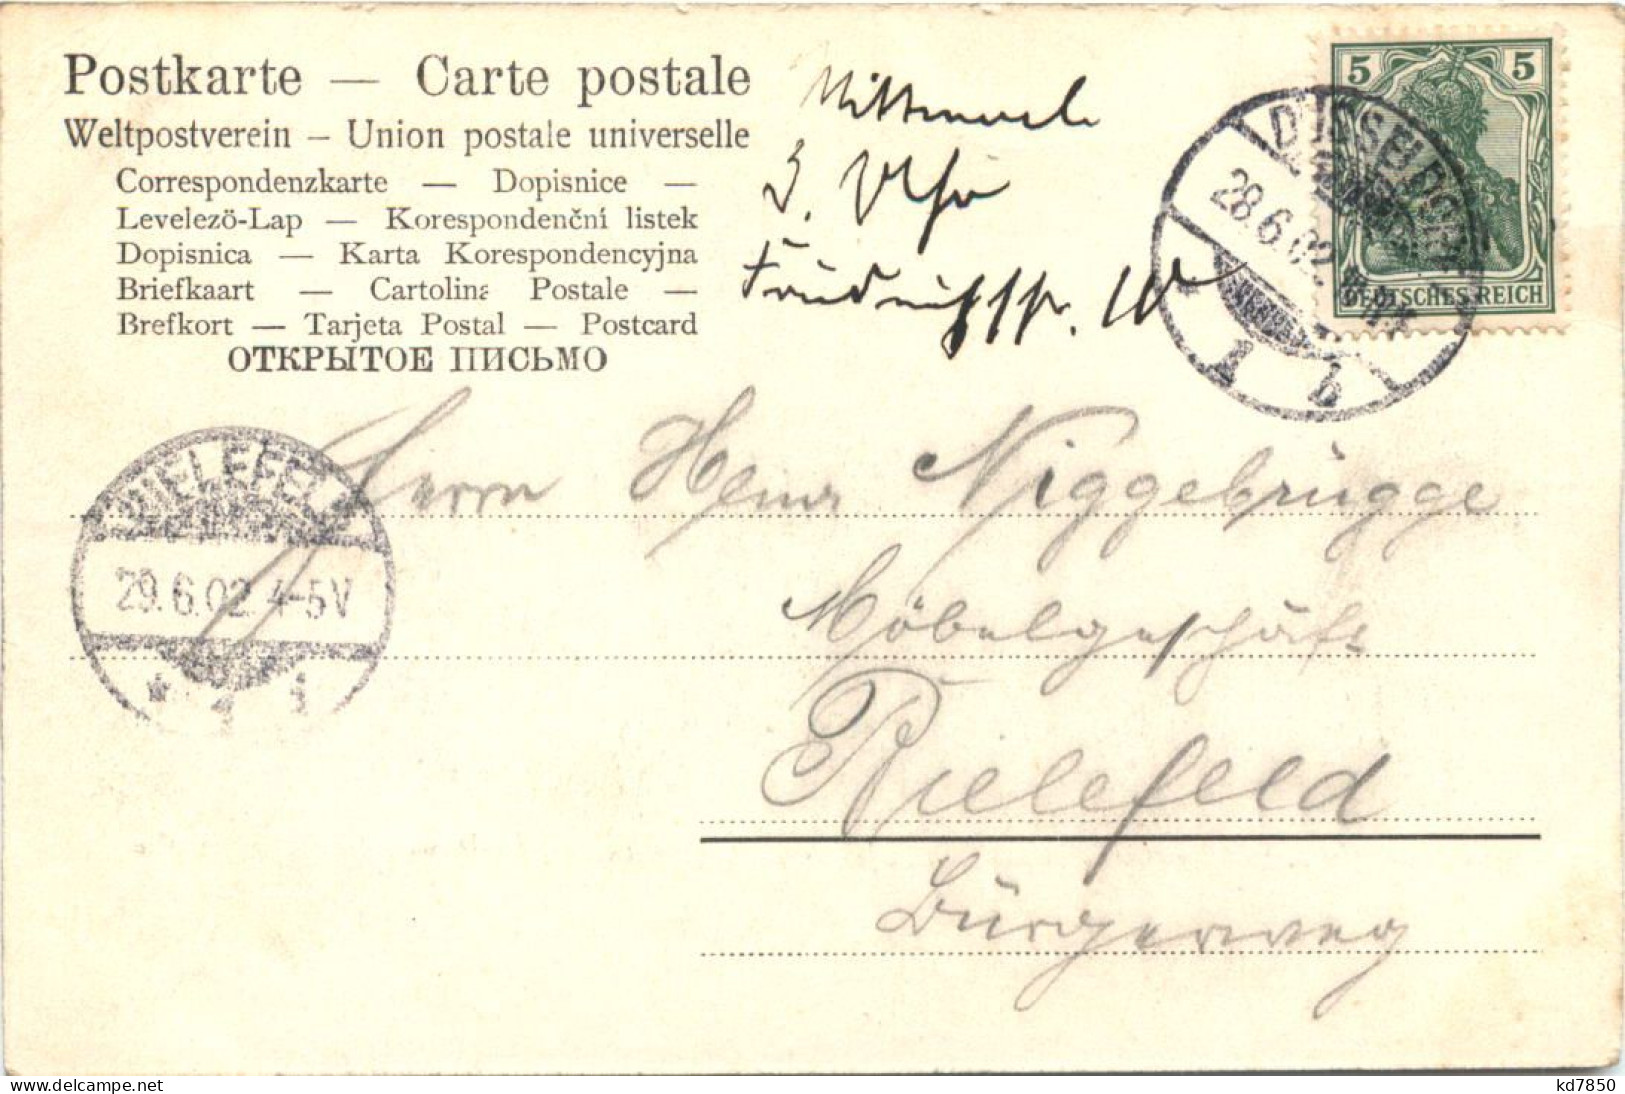 Postkarte — Carte postale
Weltpostverein – Union postale universelle
Correspondenzkarte — Dopisnice —
Levelezö-Lap — Korespondenční listek
Dopisnica — Karta Korespondencyjna
Briefkaart — Cartolina Postale —
Brefkort — Tarjeta Postal — Postcard
ОТКРЫТОЕ ПИСЬМО
3. Uhr
5 5
DEUTSCHES REICH
DÜSSELDORF
28.6.02.
1 b
BIELEFELD
29.6.02.4-5V
* 1 i
Herrn Heinr Niggebrügge
Möbelgeschäft
Bielefeld
Bürgerweg
www.delcampe.net
kd7850